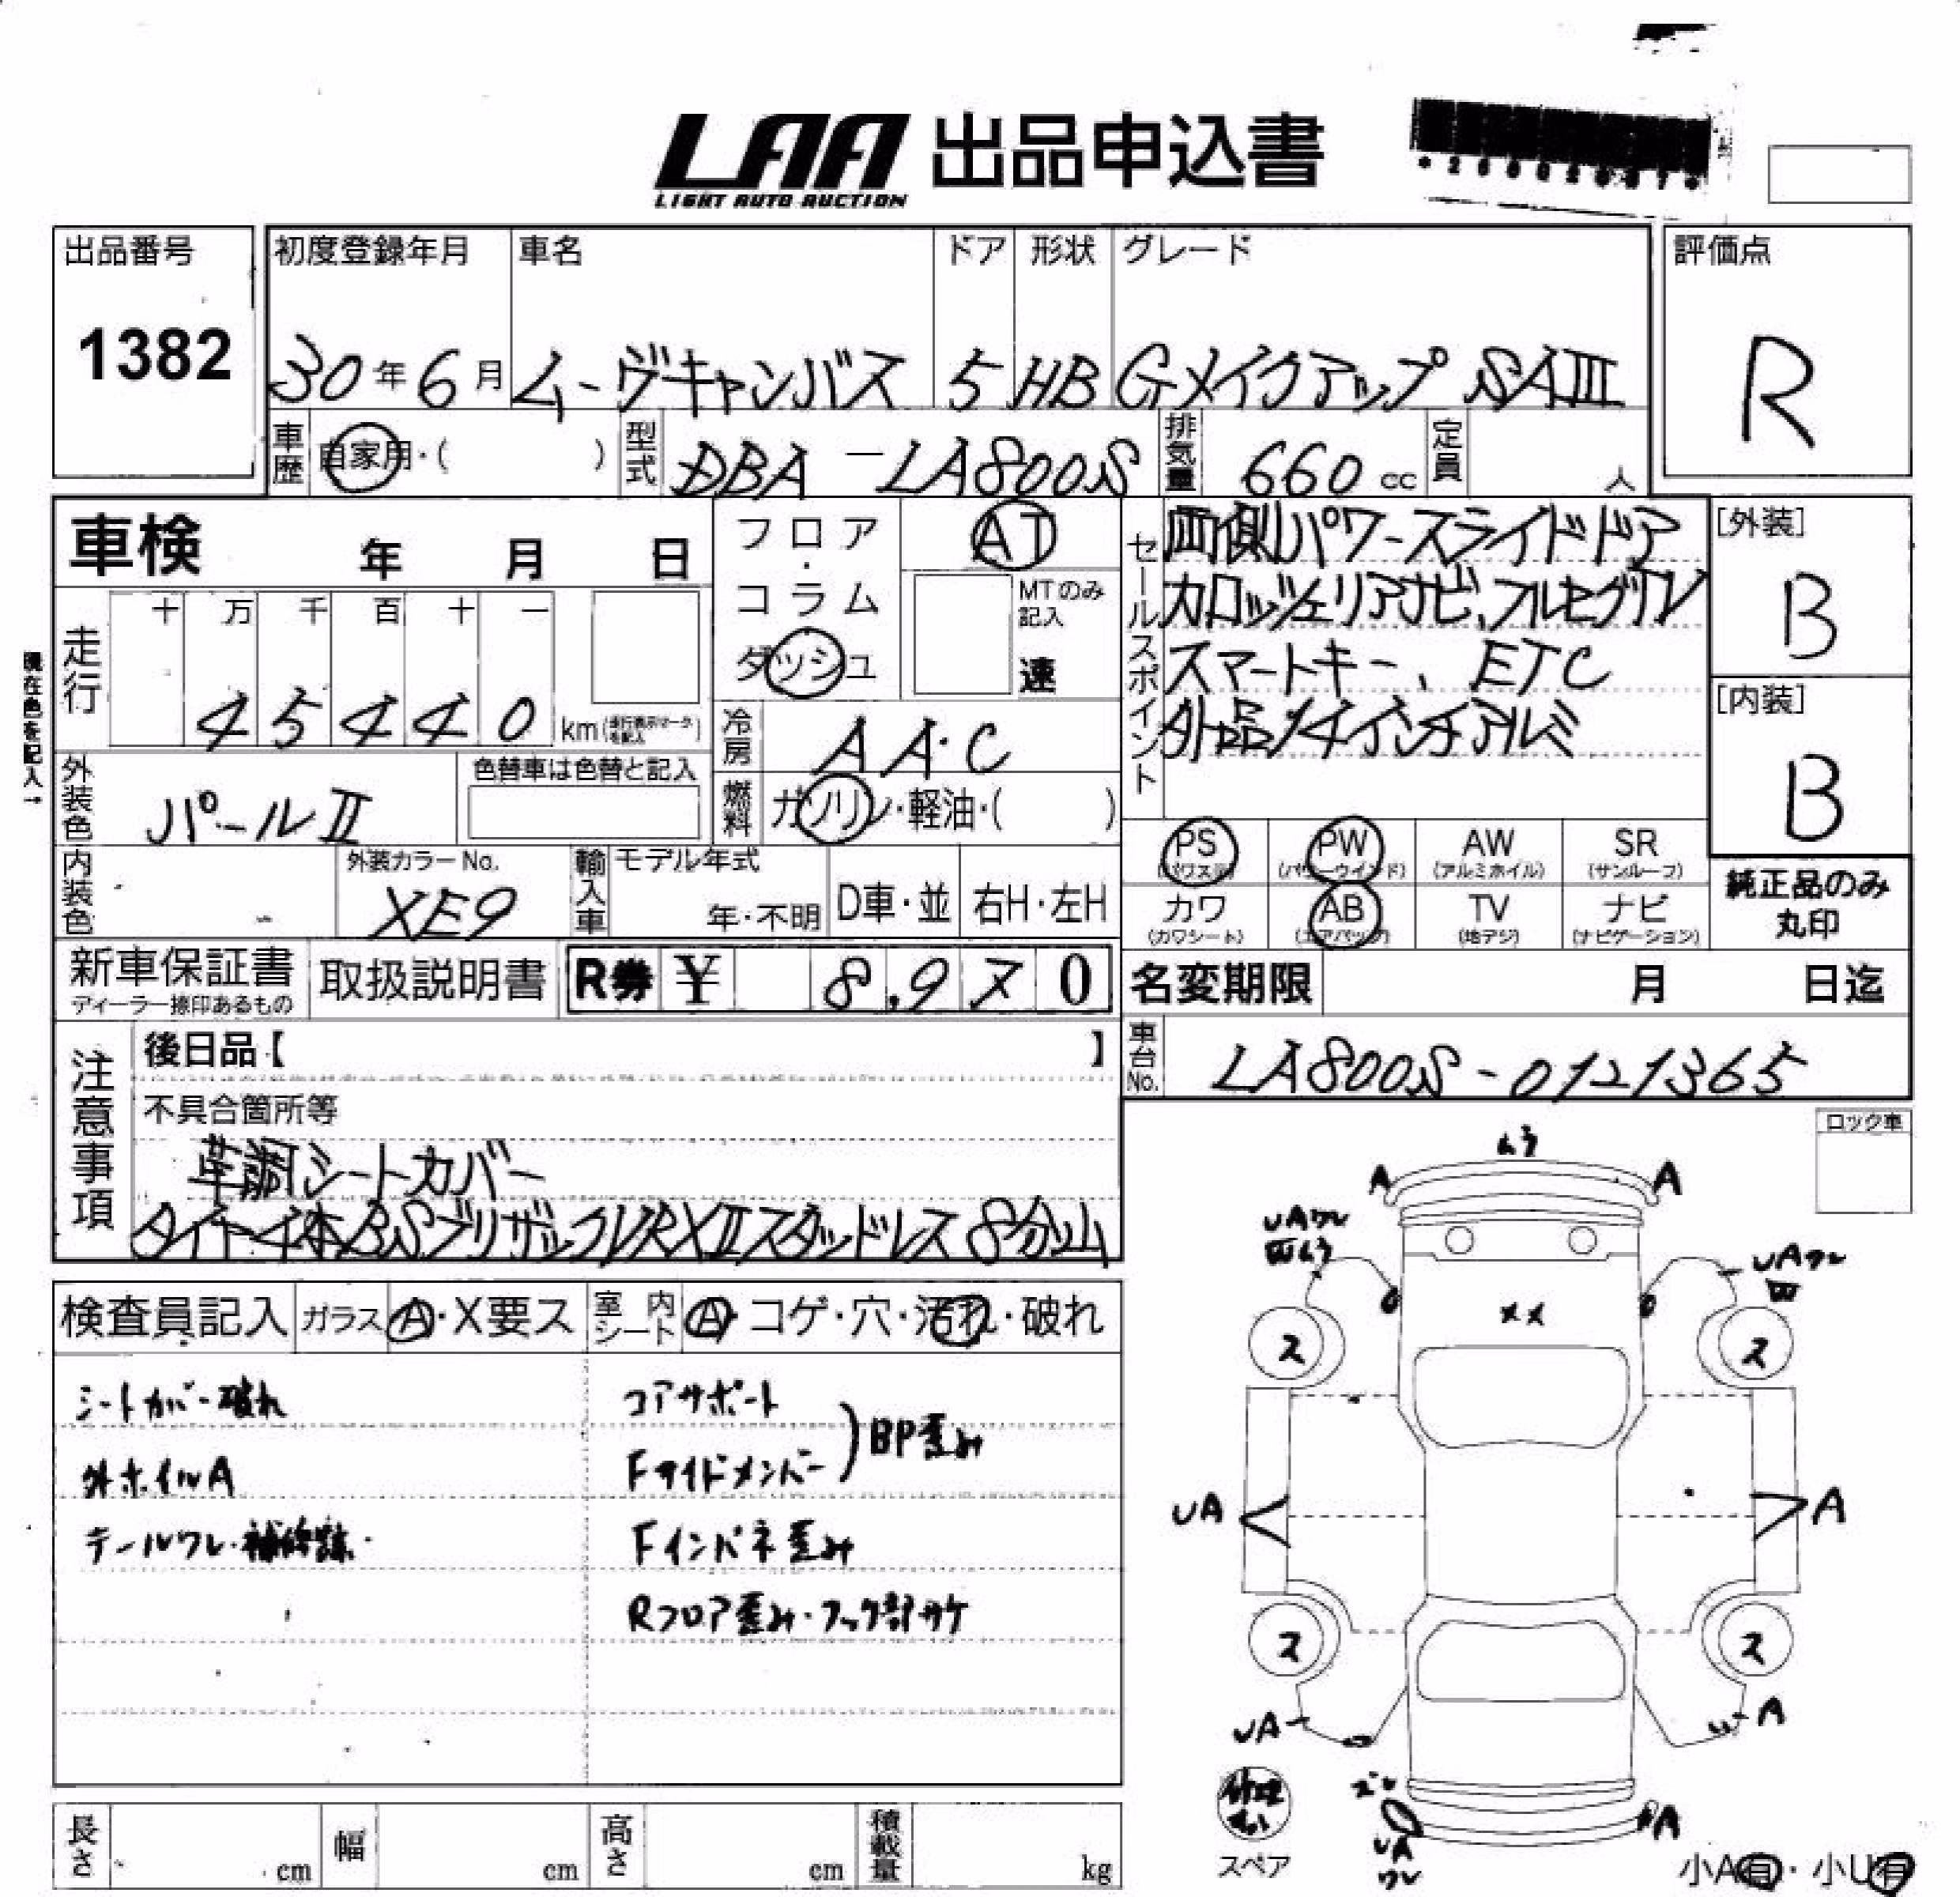 LAA 出品申込書
LIGHT AUTO AUCTION
出品番号
1382
初度登録年月 車名 ドア 形状 グレード
30年6月 ムーヴキャンバス 5 HB Gメイクアップ SAIII
評価点
R
車歴 自家用・( ) 型式 DBA-LA800S 排気量 660cc 定員 人
車検 年 月 日
フロア・コラム
ダッシュ
AT
MTのみ記入
速
セールスポイント
両側パワースライドドア
カロッツェリアナビ、フルセグTV
スマートキー、ETC
外品14インチアルミ
[外装]
B
[内装]
B
現在色を記入→
走行 十 万 千 百 十 一
45440 km
冷房 AA・C
外装色 パールII 色替車は色替と記入
燃料 ガソリン・軽油・( )
PS PW AW SR
(パワステ) (パワーウインド) (アルミホイル) (サンルーフ)
カワ AB TV ナビ
(カワシート) (エアバッグ) (地デジ) (ナビゲーション)
純正品のみ
丸印
内装色 外装カラーNo. XE9 輸入車 モデル年式 年・不明 D車・並 右H・左H
新車保証書 取扱説明書 R券 ¥ 8,970
名変期限 月 日迄
車台No. LA800S-0121365
注意事項
後日品【 】
不具合箇所等
革調シートカバー
タイヤ4本BSブリザックVRXIIスタッドレス8分山
ロック車
検査員記入 ガラス A・X要ス 室内シート A・コゲ・穴・汚れ・破れ
シートカバー破れ
外ホイルA
テールワレ・補修跡
コアサポート
Fサイドメンバー
BP歪み
Fインパネ歪み
Rフロア歪み・フック部サケ
ムラ
A A
UAワレ
ムラ
UAワレ
XX
ス ス
UA A
ス ス
UA A
UA
ワレ
A
スペア
長さ cm 幅 cm 高さ cm 積載量 kg
小A有・小U有